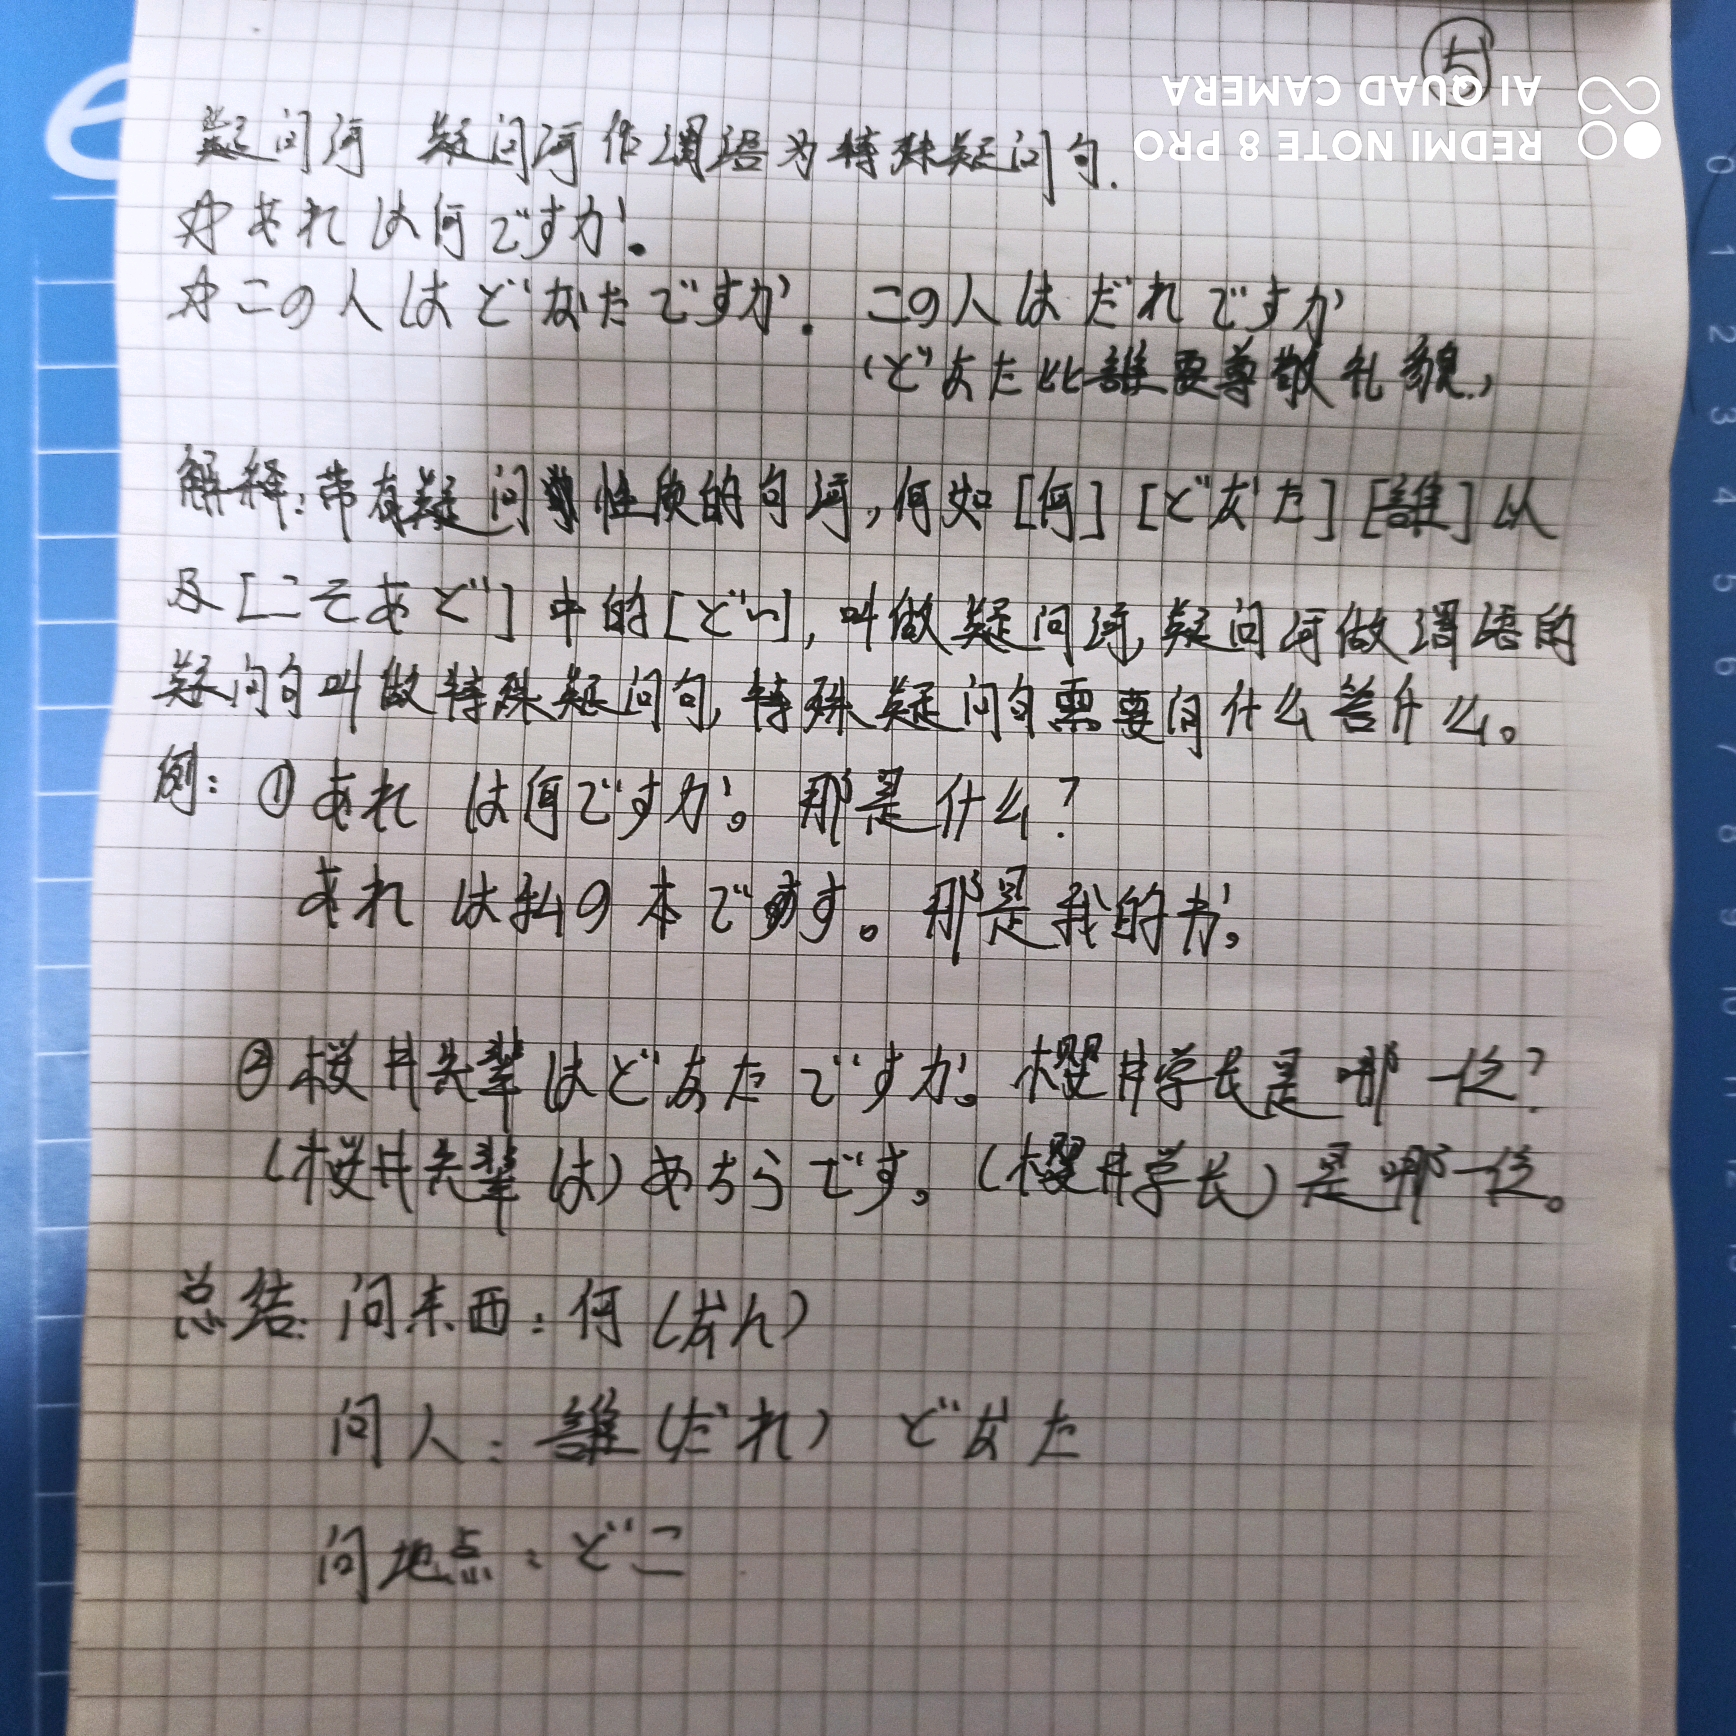 ⑤
REDMI NOTE 8 PRO
AI QUAD CAMERA
疑问词 疑问词作谓语为特殊疑问句.
☆あれは何ですか。
☆この人はどなたですか. この人はだれですか
(どなた比誰要尊敬礼貌.)
解释:带有疑问性质的句词,例如[何][どなた][誰]以
及[こそあど]中的[ど〜],叫做疑问词,疑问词做谓语的
疑问句叫做特殊疑问句,特殊疑问句需要问什么答什么。
例: ①あれは何ですか。 那是什么?
あれは私の本です。 那是我的书。
②桜井先輩はどなたですか。樱井学长是哪一位?
(桜井先輩は)あちらです。(樱井学长)是哪一位。
总结: 问东西: 何(なん)
问人: 誰(だれ) どなた
问地点: どこ